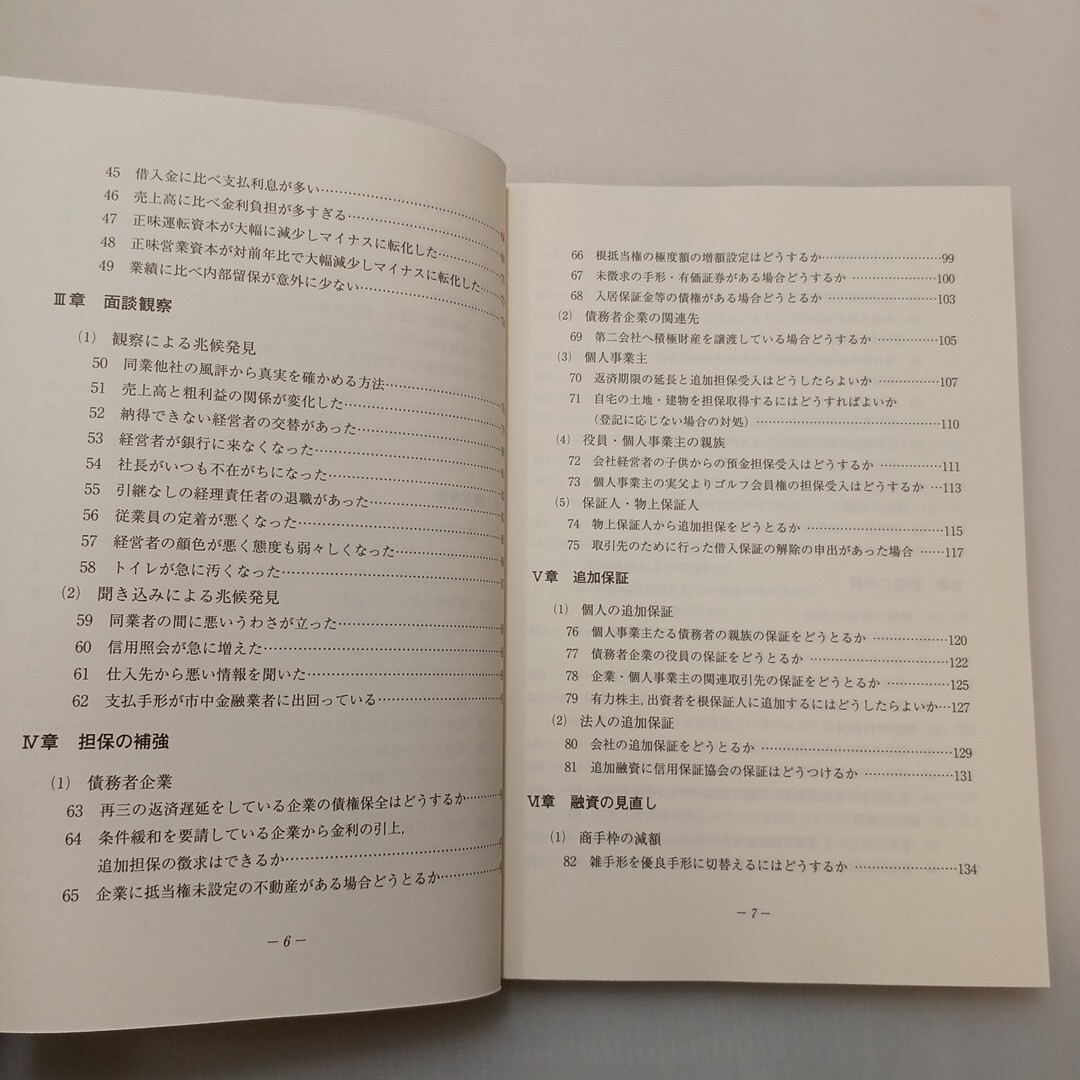 45 借入金に比べ支払利息が多い……………………
46 売上高に比べ金利負担が多すぎる…………………
47 正味運転資本が大幅に減少しマイナスに転化した……
48 正味営業資本が対前年比で大幅減少しマイナスに転化した…
49 業績に比べ内部留保が意外に少ない………………
Ⅲ章 面談観察
(1) 観察による兆候発見
50 同業他社の風評から真実を確かめる方法……………
51 売上高と粗利益の関係が変化した…………………
52 納得できない経営者の交替があった………………
53 経営者が銀行に来なくなった……………………
54 社長がいつも不在がちになった…………………
55 引継なしの経理責任者の退職があった……………
56 従業員の定着が悪くなった………………………
57 経営者の顔色が悪く態度も弱々しくなった…………
58 トイレが急に汚くなった…………………………
(2) 聞き込みによる兆候発見
59 同業者の間に悪いうわさが立った…………………
60 信用照会が急に増えた……………………………
61 仕入先から悪い情報を聞いた……………………
62 支払手形が市中金融業者に出回っている……………
Ⅳ章 担保の補強
(1) 債務者企業
63 再三の返済遅延をしている企業の債権保全はどうするか……
64 条件緩和を要請している企業から金利の引上,
追加担保の徴求はできるか…………………………
65 企業に抵当権未設定の不動産がある場合どうとるか………
－6－
66 根抵当権の極度額の増額設定はどうするか……………99
67 未徴求の手形・有価証券がある場合どうするか…………100
68 入居保証金等の債権がある場合どうとるか……………103
(2) 債務者企業の関連先
69 第二会社へ積極財産を譲渡している場合どうするか………105
(3) 個人事業主
70 返済期限の延長と追加担保受入はどうしたらよいか………107
71 自宅の土地・建物を担保取得するにはどうすればよいか
(登記に応じない場合の対処)…………………………110
(4) 役員・個人事業主の親族
72 会社経営者の子供からの預金担保受入はどうするか………111
73 個人事業主の実父よりゴルフ会員権の担保受入はどうするか…113
(5) 保証人・物上保証人
74 物上保証人から追加担保をどうとるか…………………115
75 取引先のために行った借入保証の解除の申出があった場合……117
Ⅴ章 追加保証
(1) 個人の追加保証
76 個人事業主たる債務者の親族の保証をどうとるか…………120
77 債務者企業の役員の保証をどうとるか…………………122
78 企業・個人事業主の関連取引先の保証をどうとるか………125
79 有力株主,出資者を根保証人に追加するにはどうしたらよいか…127
(2) 法人の追加保証
80 会社の追加保証をどうとるか…………………………129
81 追加融資に信用保証協会の保証はどうつけるか…………131
Ⅵ章 融資の見直し
(1) 商手枠の減額
82 雑手形を優良手形に切替えるにはどうするか……………134
－7－